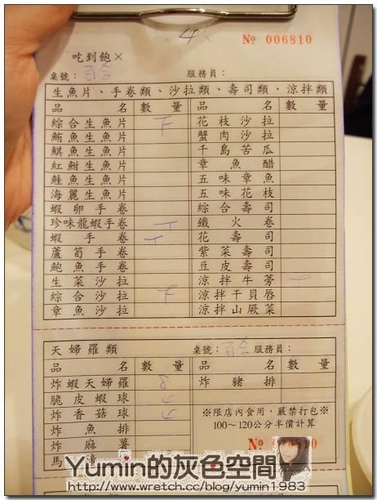 4
№ 006810
吃到飽×
桌號： 服務員：
生魚片、手卷類、沙拉類、壽司類、涼拌類
品名 數量 品名 數量
綜合生魚片 花枝沙拉
鮪魚生魚片 蟹肉沙拉
鯕魚生魚片 千島苦瓜
紅魽生魚片 章魚醋
鮭魚生魚片 五味章魚
海鱺生魚片 五味花枝
蝦卵手卷 綜合壽司
珍味龍蝦手卷 鐵火卷
蝦手卷 花壽司
蘆筍手卷 紫菜壽司
鮑魚手卷 豆皮壽司
生菜沙拉 涼拌牛蒡
綜合沙拉 涼拌干貝唇
章魚沙拉 涼拌山蕨菜
天婦羅類 桌號： 服務員：
品名 數量 品名 數量
炸蝦天婦羅 炸豬排
脆皮蝦球
炸香菇球
炸魚排
炸麻簹
※限店內食用，嚴禁打包※
100～120公分半價計算
Yumin的灰色空間
http://www.wretch.cc/blog/yumin1983